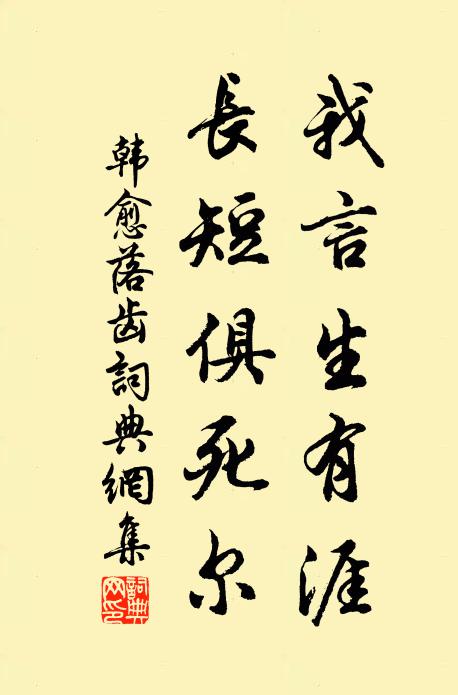 我言生有涯
長短俱死尔
韩愈落齿詞典網集
詞典网印